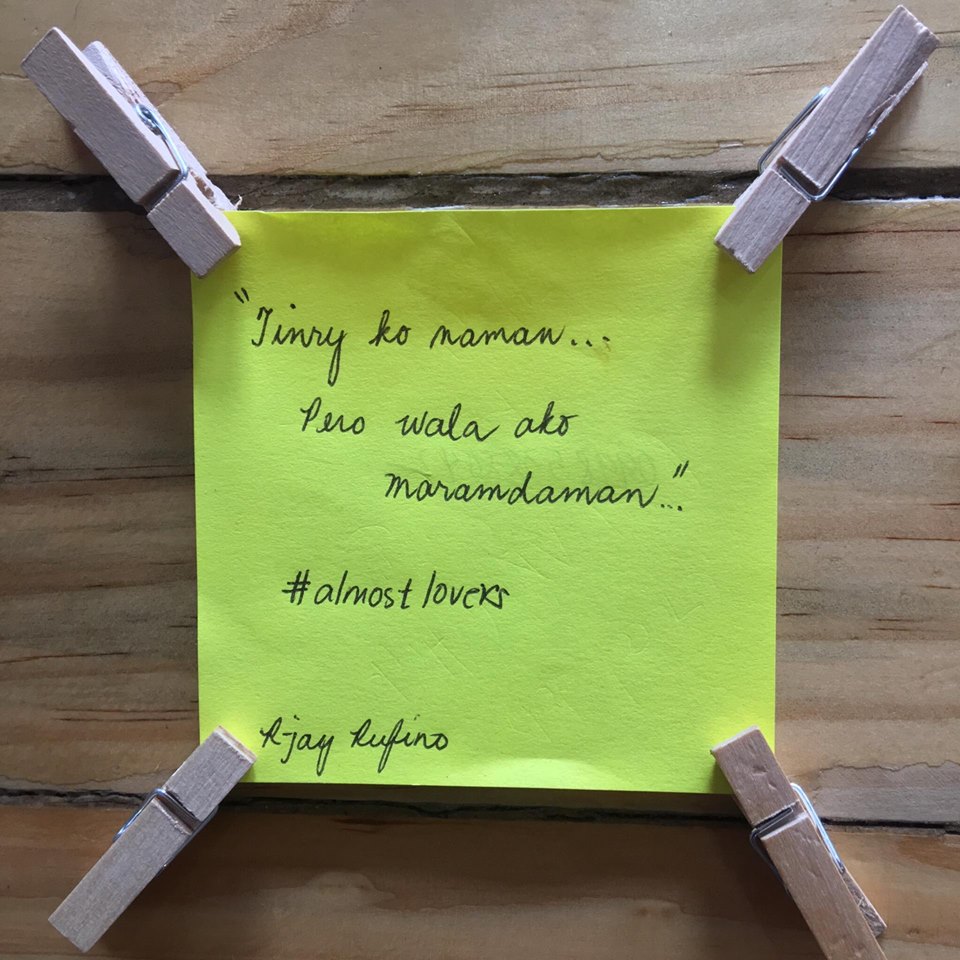 "Tinry ko naman...
Pero wala ako
maramdaman..."
#almost lovers
R-jay Rufino